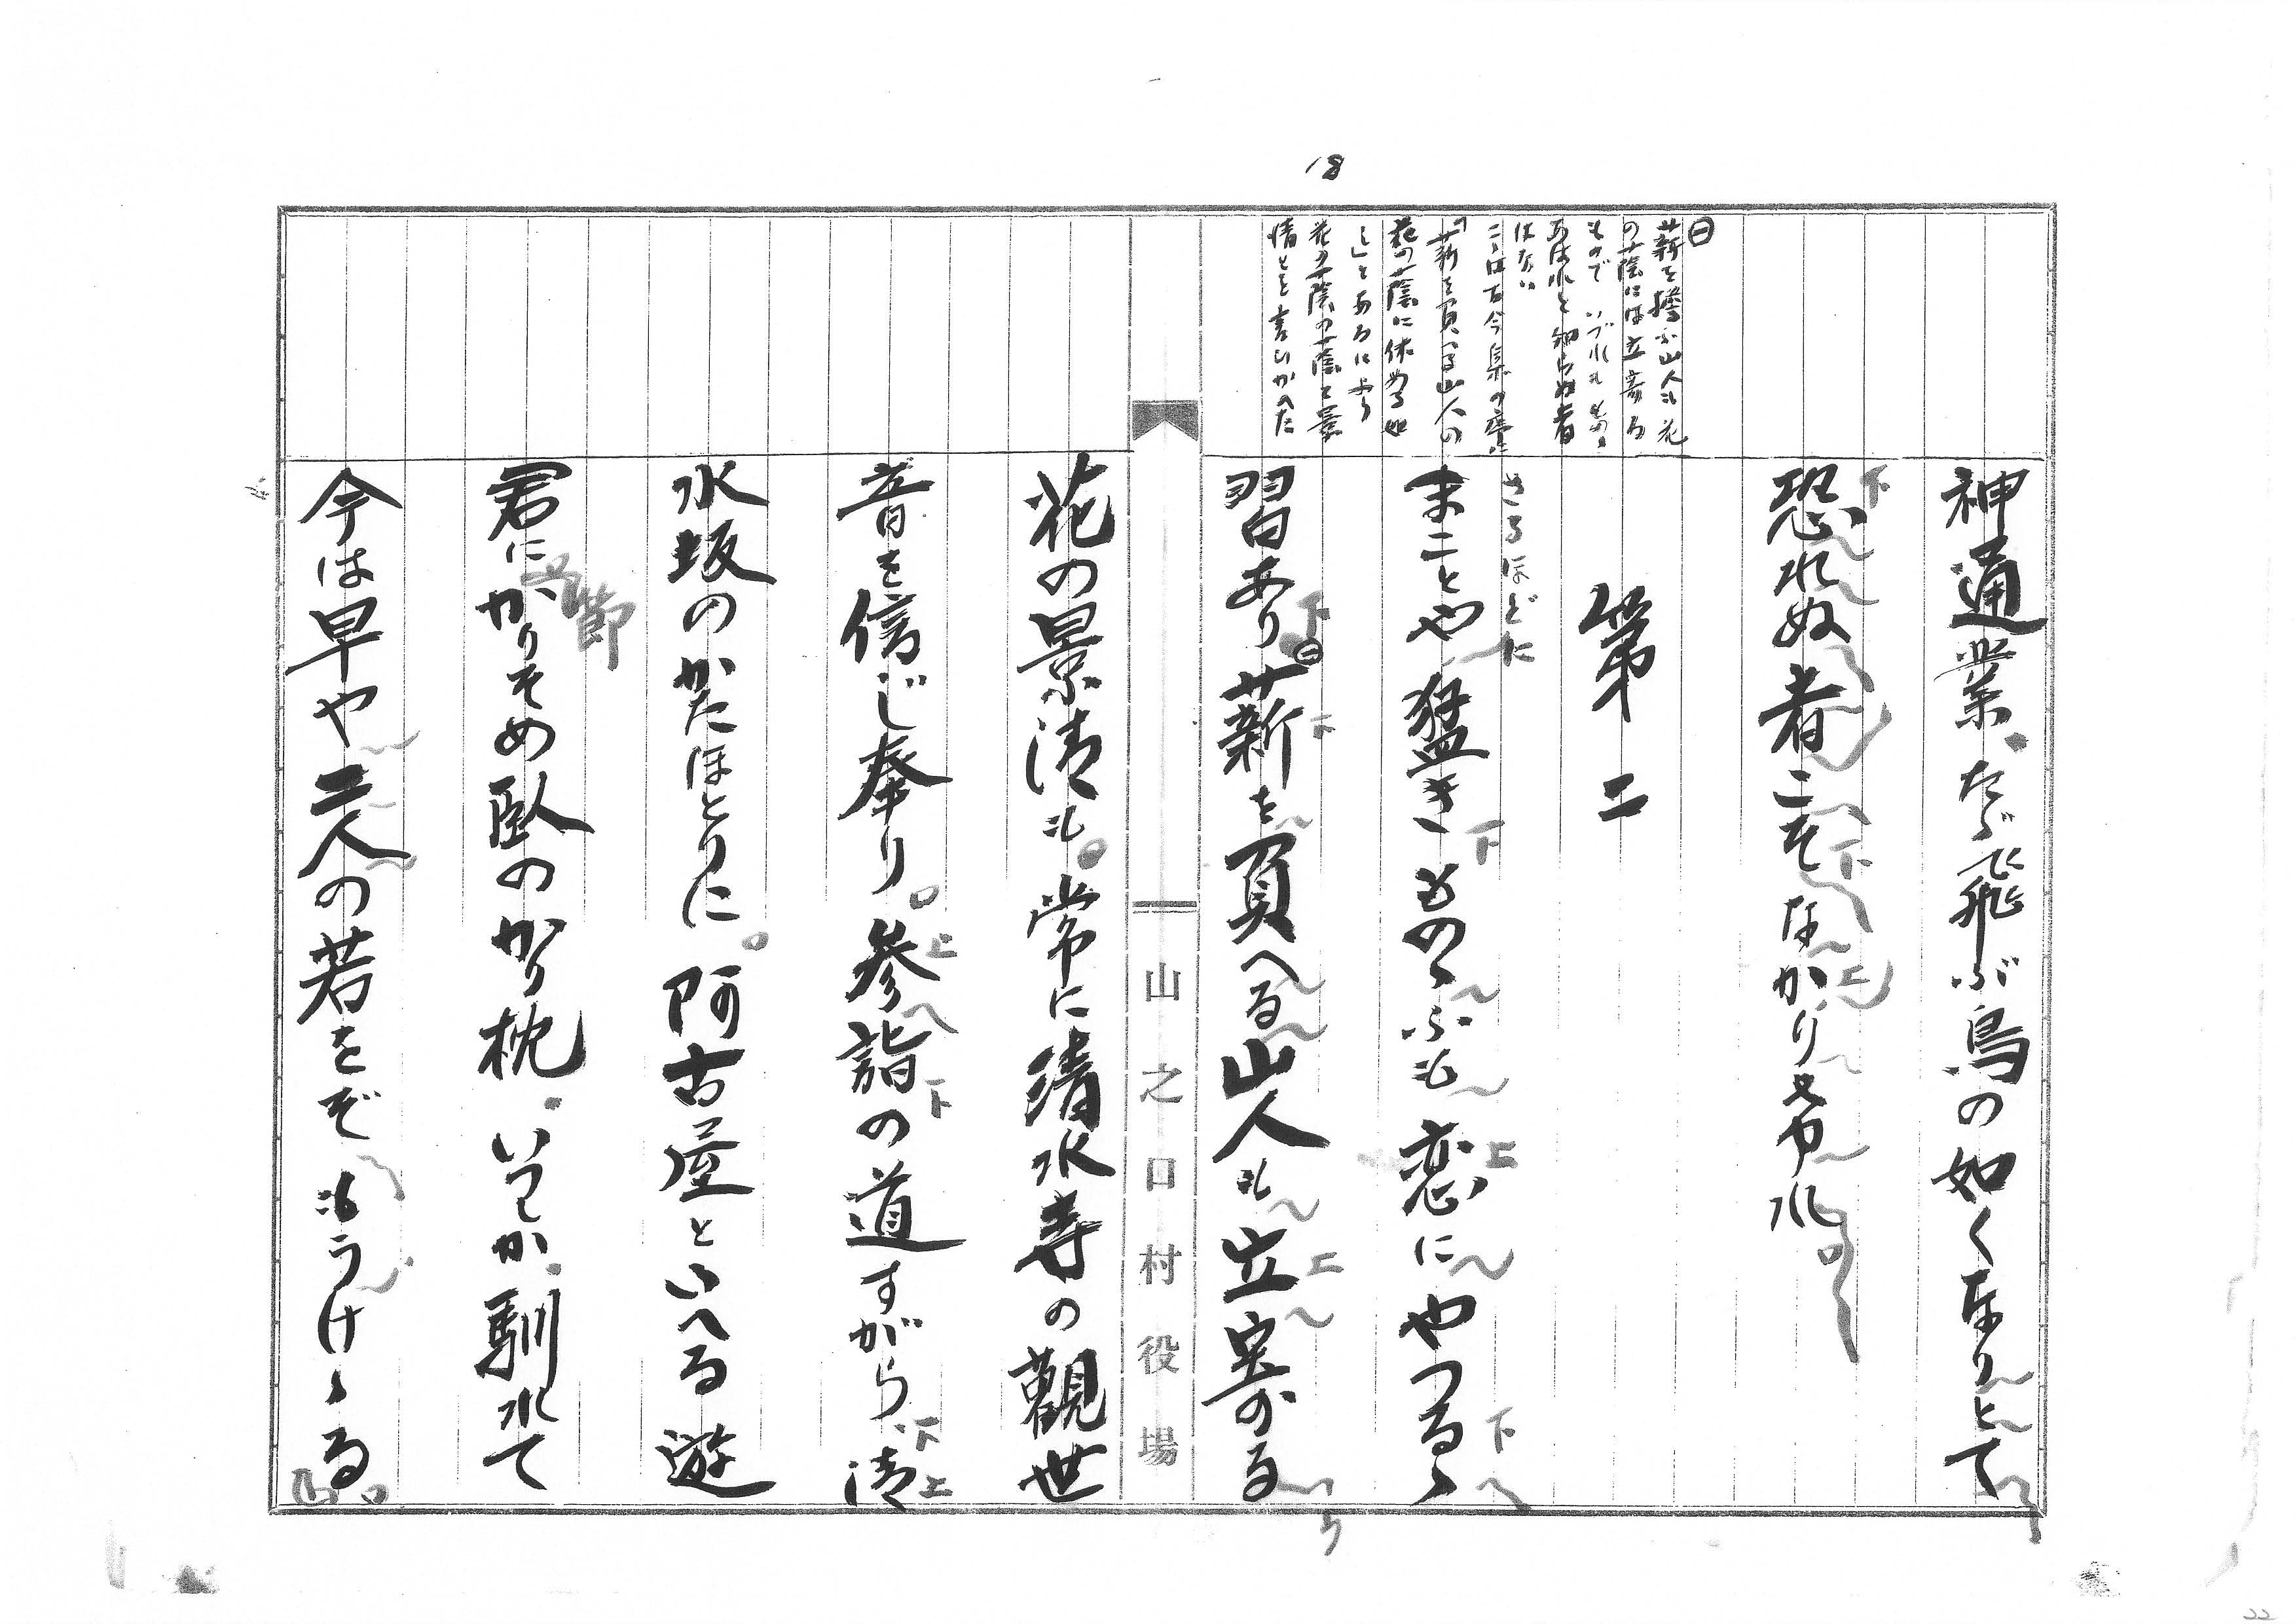 18
神通業、たゞ飛ぶ鳥の如くなりとて
恐れぬ者こそなかりけれ
㊀
薪を擔ふ山人も花
の蔭には立寄る
もので いづれもものゝ
あはれを知らぬ者
はない
こゝは古今集の序に
「薪を負へる山人の
花の蔭に休める如
し」とあるにより
花の蔭の蔭を景
清とを言ひかへた
第二
さるほどに
まことや猛きものゝふも恋にやつるゝ
習あり㊀薪を負へる山人も立寄る
山之口村役場
花の景清も。常に清水寺の觀世
音を信じ奉り。参詣の道すがら、清
水坂のかたほとりに。阿古屋といへる遊
君にかりそめ臥のかり枕、いつしか馴れて
今は早や二人の若をぞもうけゝる
22